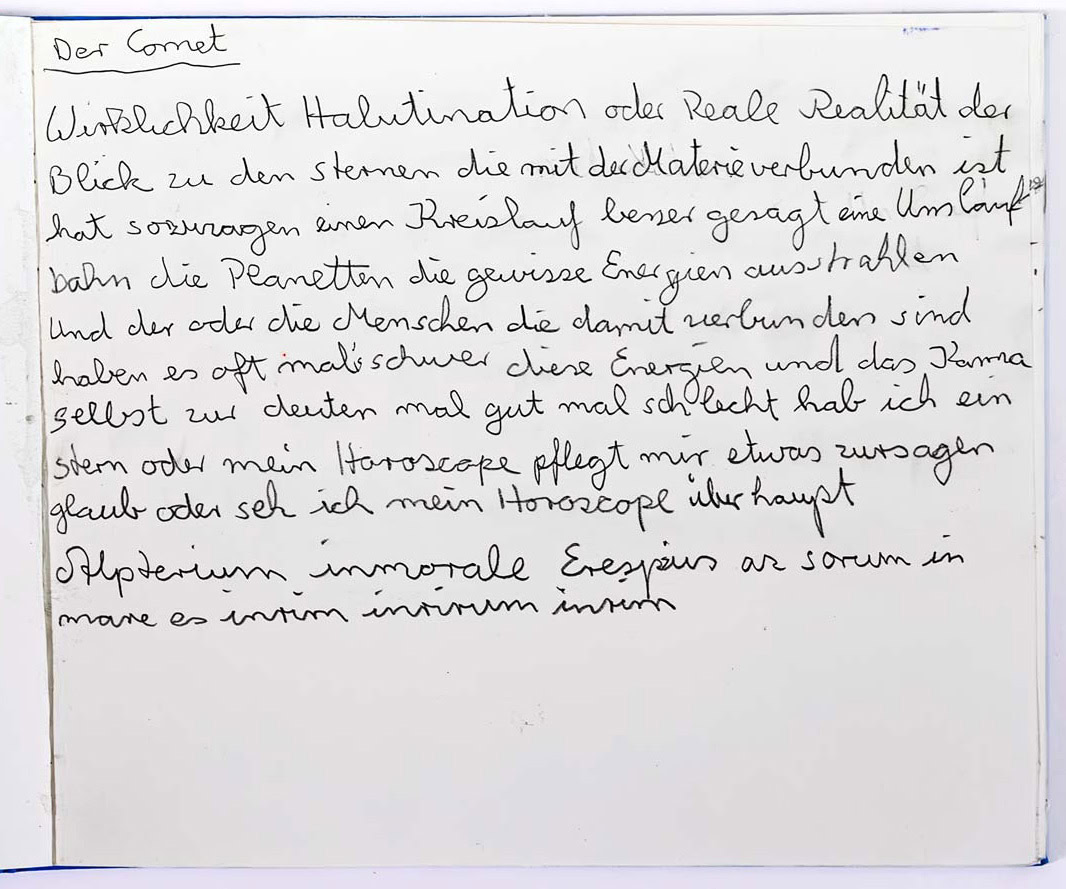 Der Comet
Wirklichkeit Halutination oder Reale Realität der
Blick zu den sternen die mit der Materie verbunden ist
hat sozuzagen einen Kreislauf besser gesagt eine Umlauf
bahn die Planetten die gewisse Energien ausstrahlen
Und der oder die Menschen die damit verbunden sind
haben es oft mal's schwer diese Energien und das Karma
sellbst zur deuten mal gut mal schlecht hab ich ein
stern oder mein Horoscope pflegt mir etwas zursagen
glaub oder seh ich mein Horoscope überhaupt
Alpterium inmorale as sorum in
mare es inrim inrirum inrim